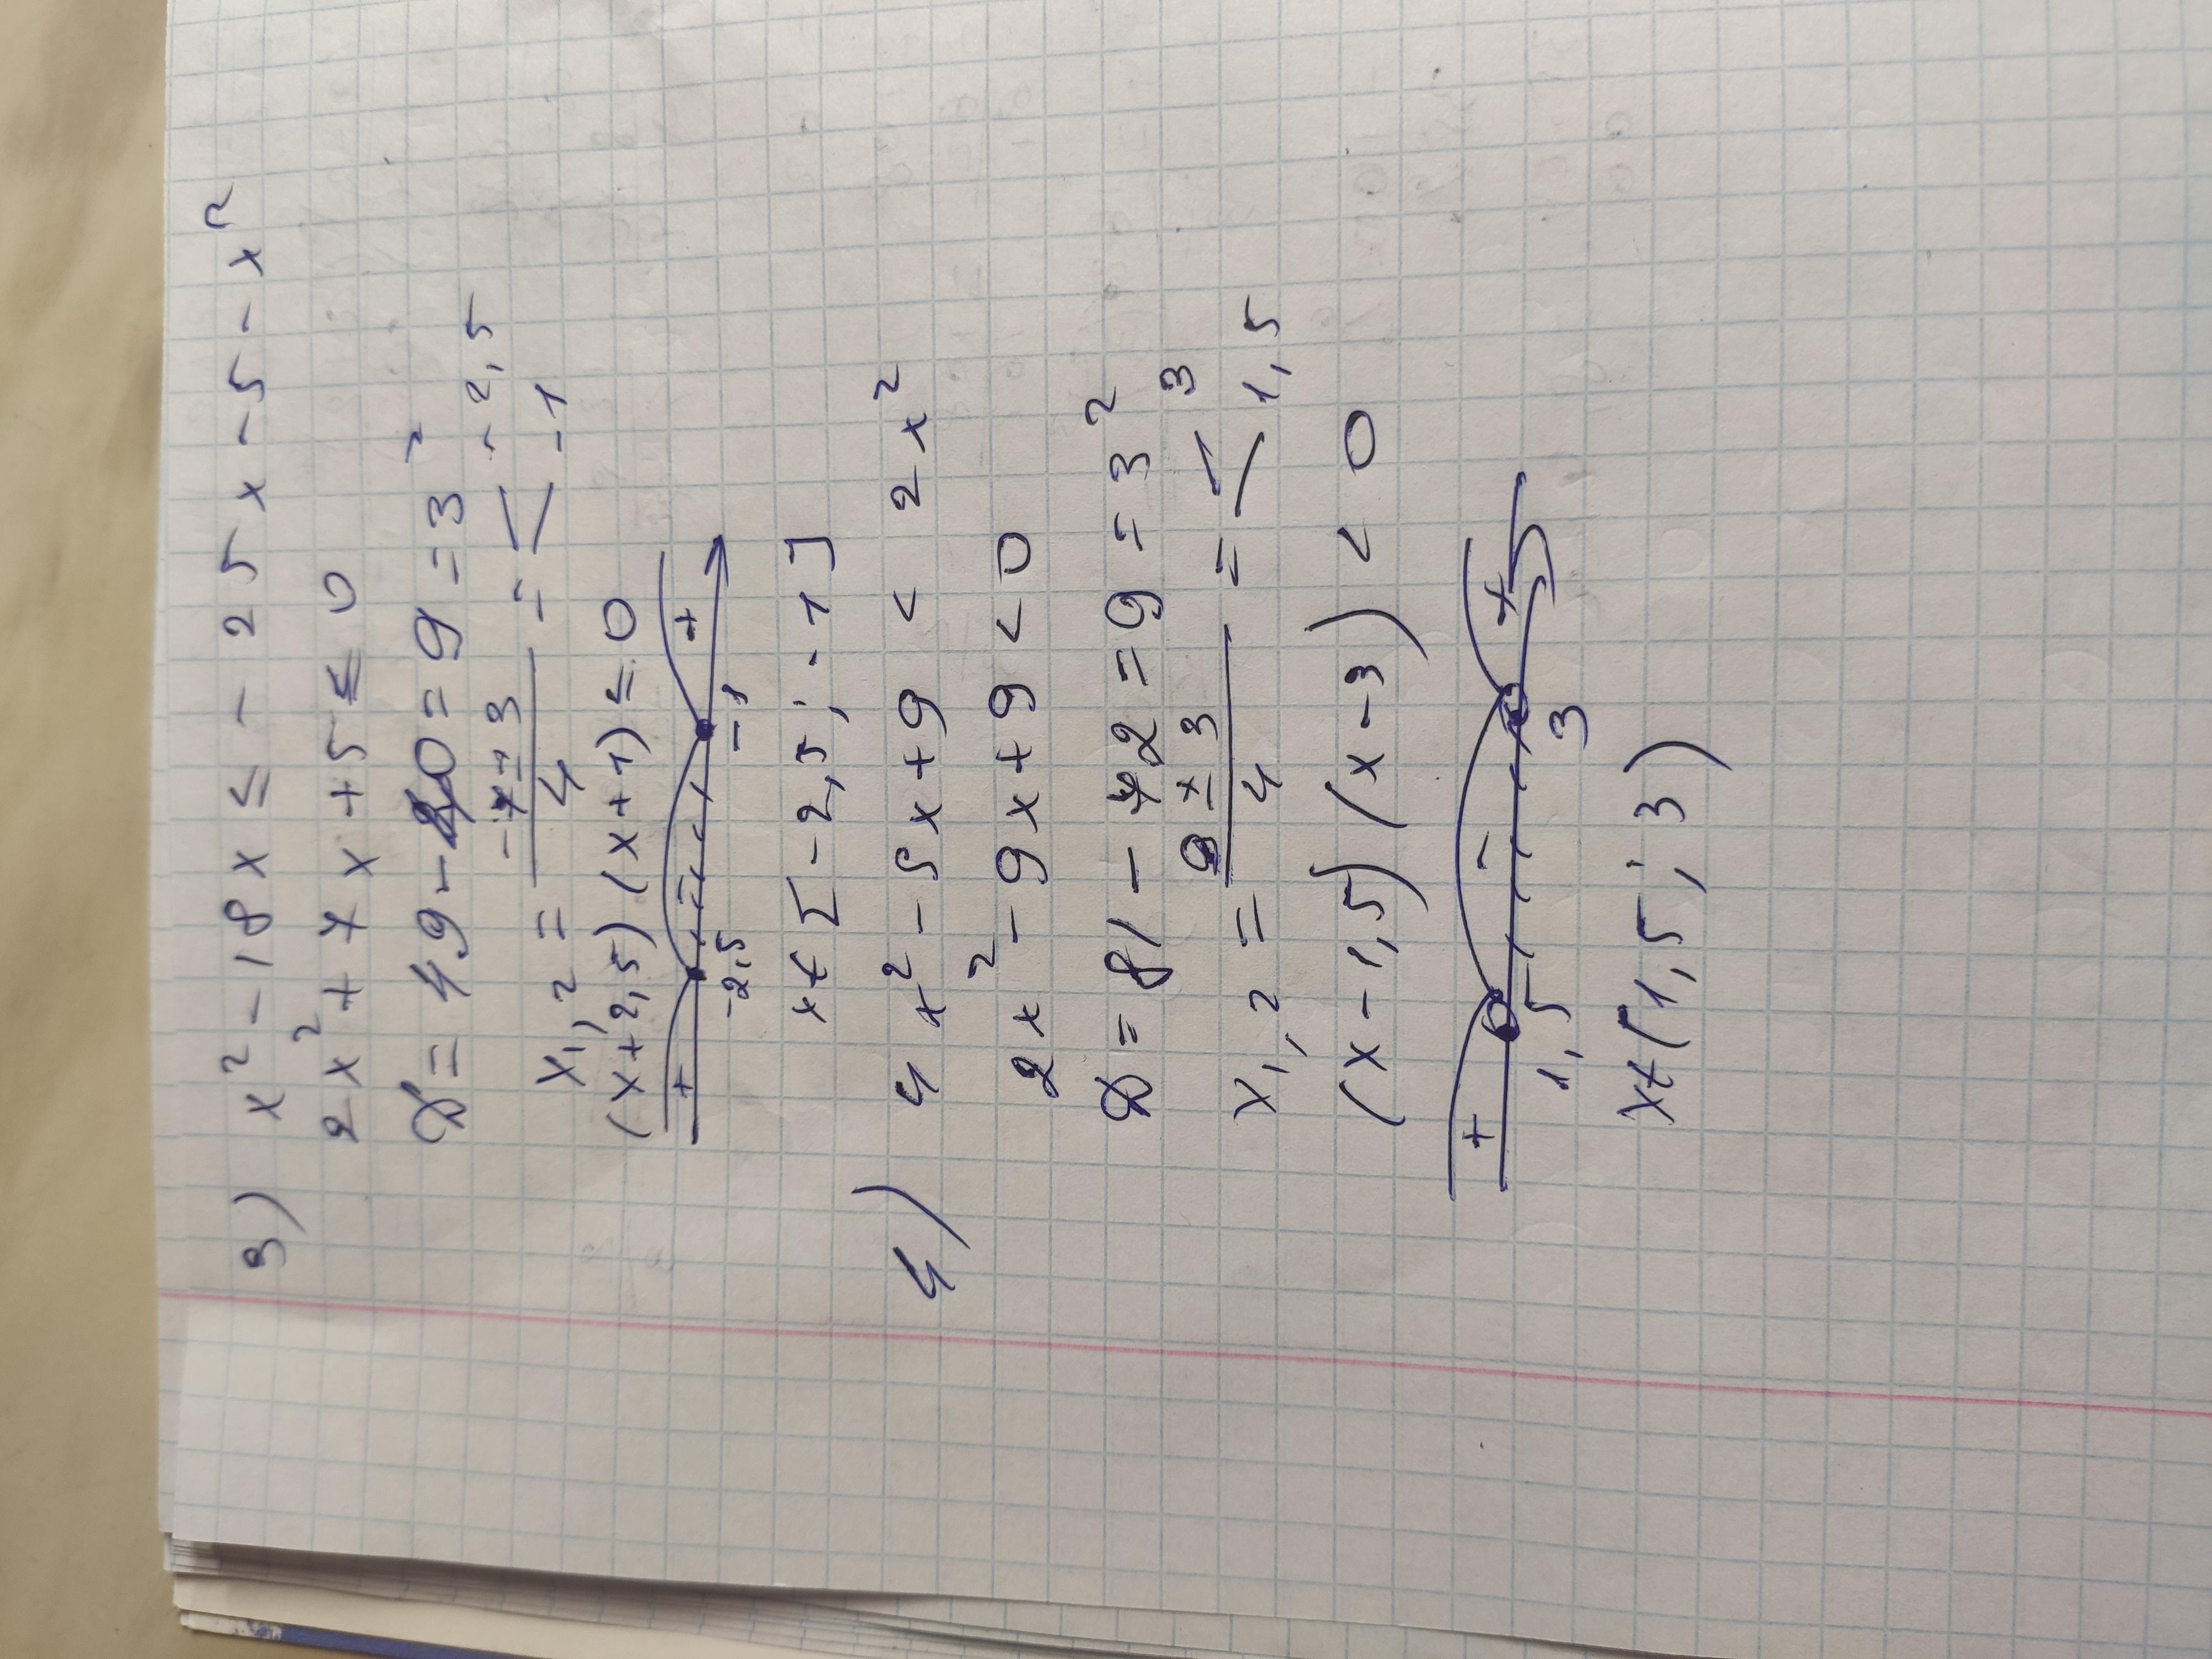 3) x² - 18x ≤ - 25x - 5 - x²
2x² + 7x + 5 ≤ 0
D = 49 - 40 = 9 = 3²
x₁,₂ = (-7 ± 3)/4 = < -2,5
-1
(x + 2,5)(x + 1) ≤ 0
+ - +
-2,5 -1
x ∈ [-2,5; -1]
4) 4x² - 5x + 9 < 2x²
2x² - 9x + 9 < 0
D = 81 - 72 = 9 = 3²
x₁,₂ = (9 ± 3)/4 = < 3
1,5
(x - 1,5)(x - 3) < 0
+ - +
1,5 3
x ∈ (1,5; 3)